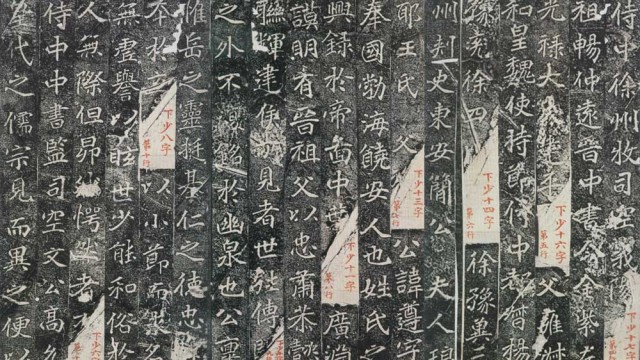 侍中徐州牧司空
祖暢仲遠晉中書令金紫
光祿大夫
下少十六字
第五行
父雍
和皇魏使持節侍中都督揚
豫兗徐四
下少十四字
第六行
徐豫冀三
州刺史東安簡公
夫人琅
耶王氏
父
下少十三字
公諱遵字
奉國勃海饒安人也姓氏之
興錄於帝喾中葉
下少十一字
第八行
廣淵
讚明有晉祖父以忠肅恭懿
聯輝建侯
見者世弈傳
之外不
於幽泉也公稟
惟岳之靈挺基仁之德忠
本於
下少八字
第十行
以小節而求名
無虛譽以眩世少能和俗於
人無際但昂
愕然者
侍中中書監司空文公高允
當代之儒宗見而異之便以